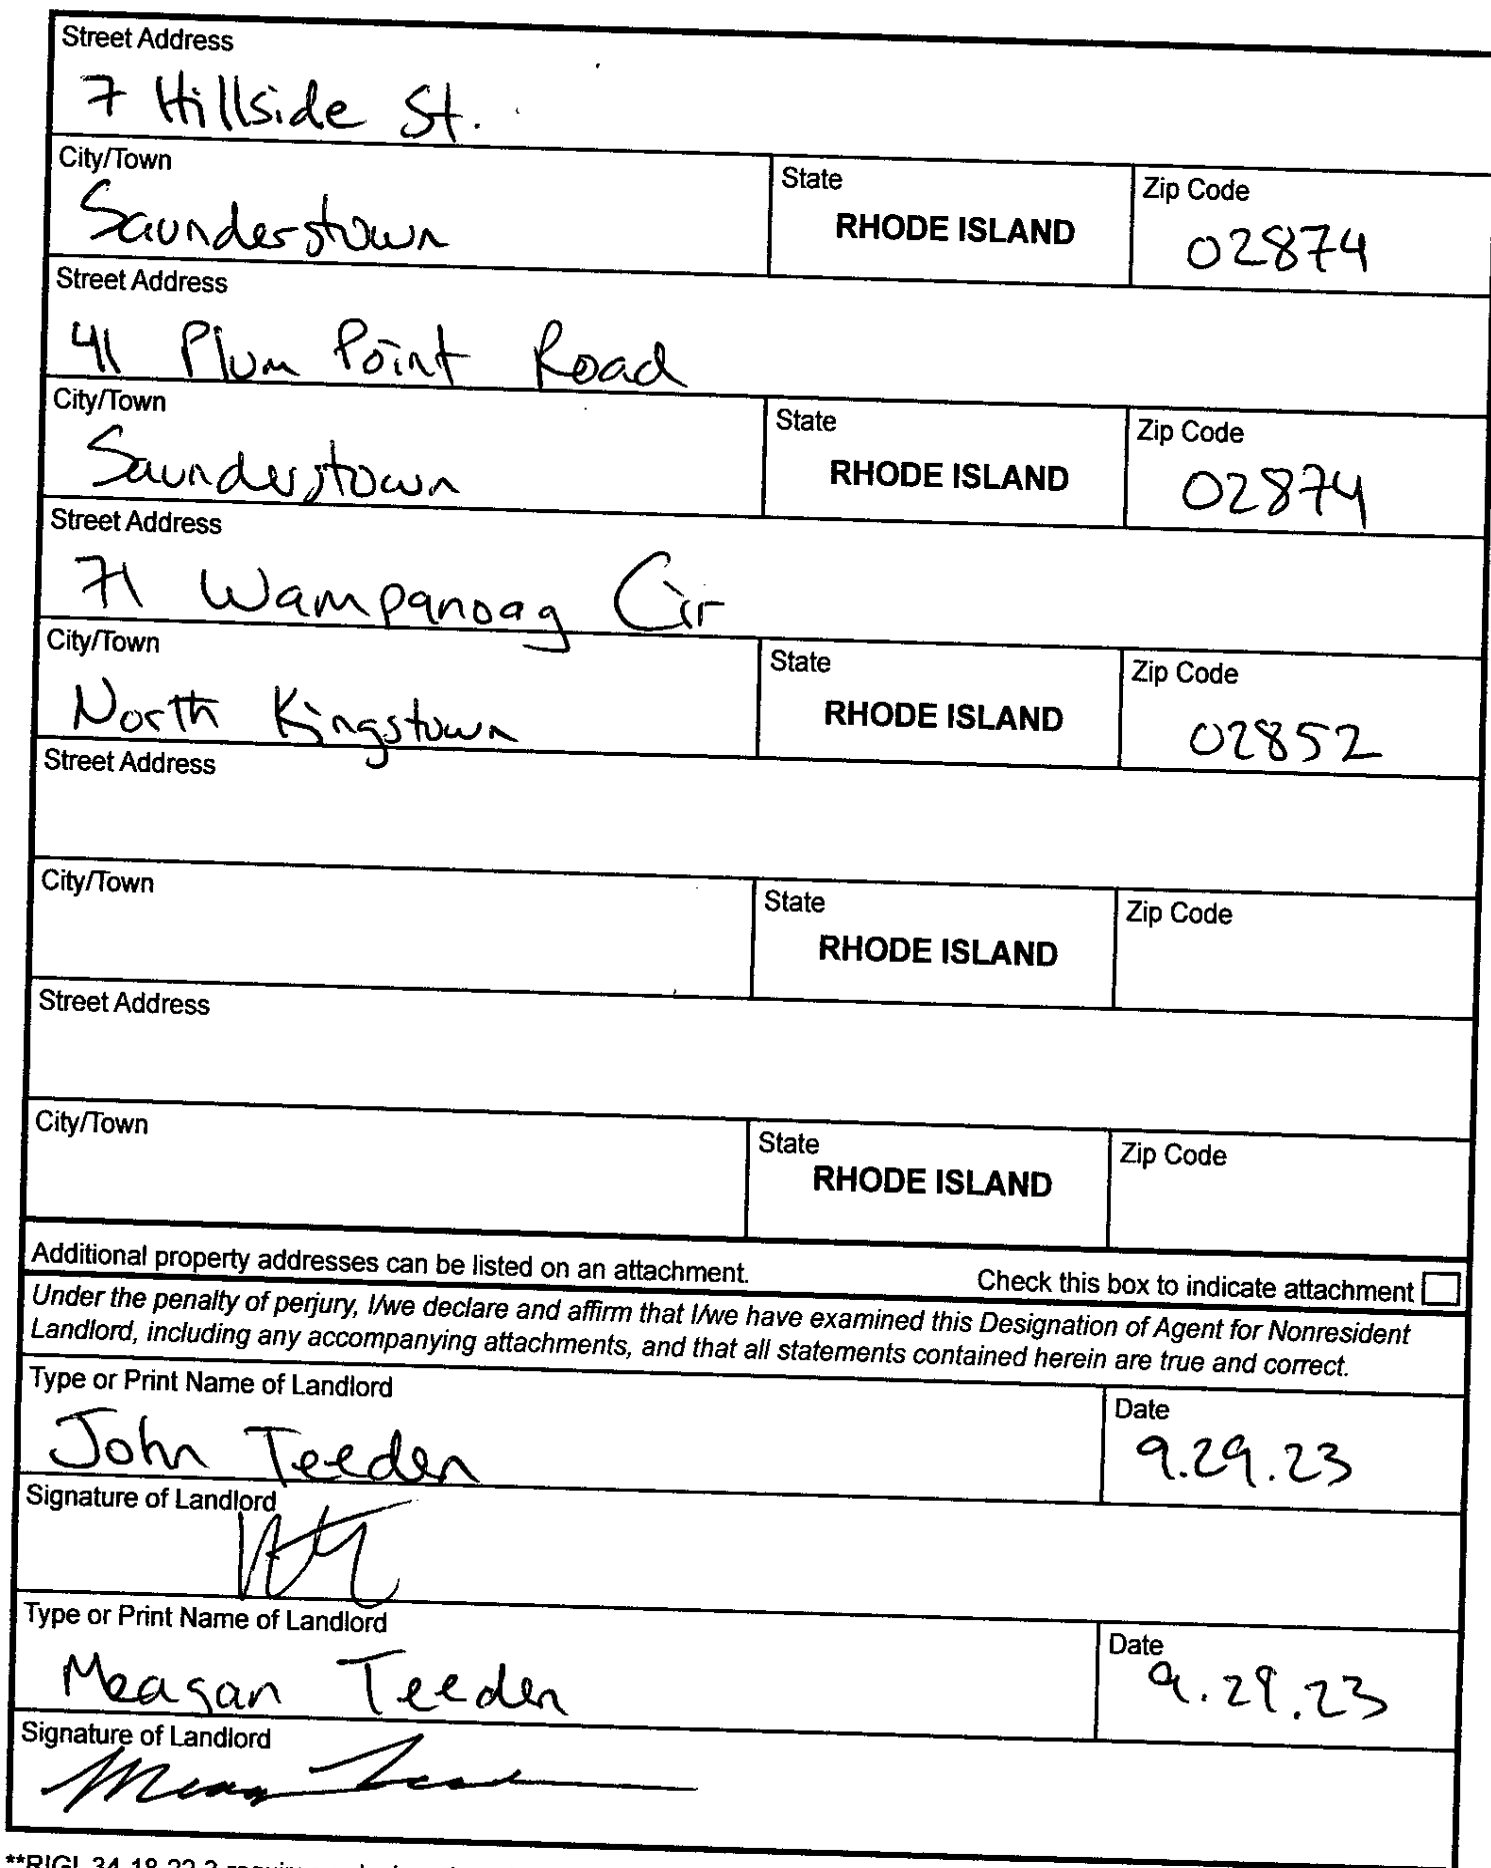 Street Address
7 Hillside St.
City/Town State Zip Code
Saunderstown RHODE ISLAND 02874
Street Address
41 Plum Point Road
City/Town State Zip Code
Saunderstown RHODE ISLAND 02874
Street Address
71 Wampanoag Cir
City/Town State Zip Code
North Kingstown RHODE ISLAND 02852
Street Address
City/Town State Zip Code
RHODE ISLAND
Street Address
City/Town State Zip Code
RHODE ISLAND
Additional property addresses can be listed on an attachment. Check this box to indicate attachment
Under the penalty of perjury, I/we declare and affirm that I/we have examined this Designation of Agent for Nonresident
Landlord, including any accompanying attachments, and that all statements contained herein are true and correct.
Type or Print Name of Landlord Date
John Teeden 9.29.23
Signature of Landlord
Type or Print Name of Landlord Date
Meagan Teeden 9.29.23
Signature of Landlord
**RIGL 34-18-22.3